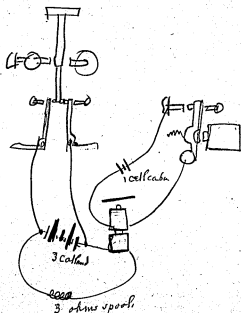 1 cell carbon
3 Callaud
3 ohms spool.